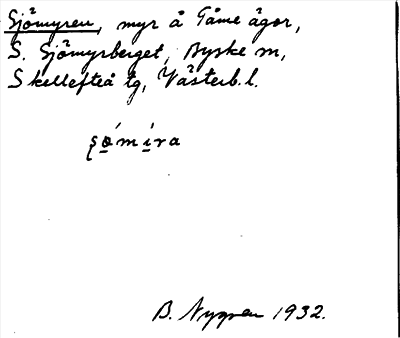 Sjömyren, myr å Tåme ägor,
S. Sjömyrberget, Byske sn,
Skellefteå tg, Västerb. l.
ʂǿ̱mi̱̍ra
B. Nygren 1932.